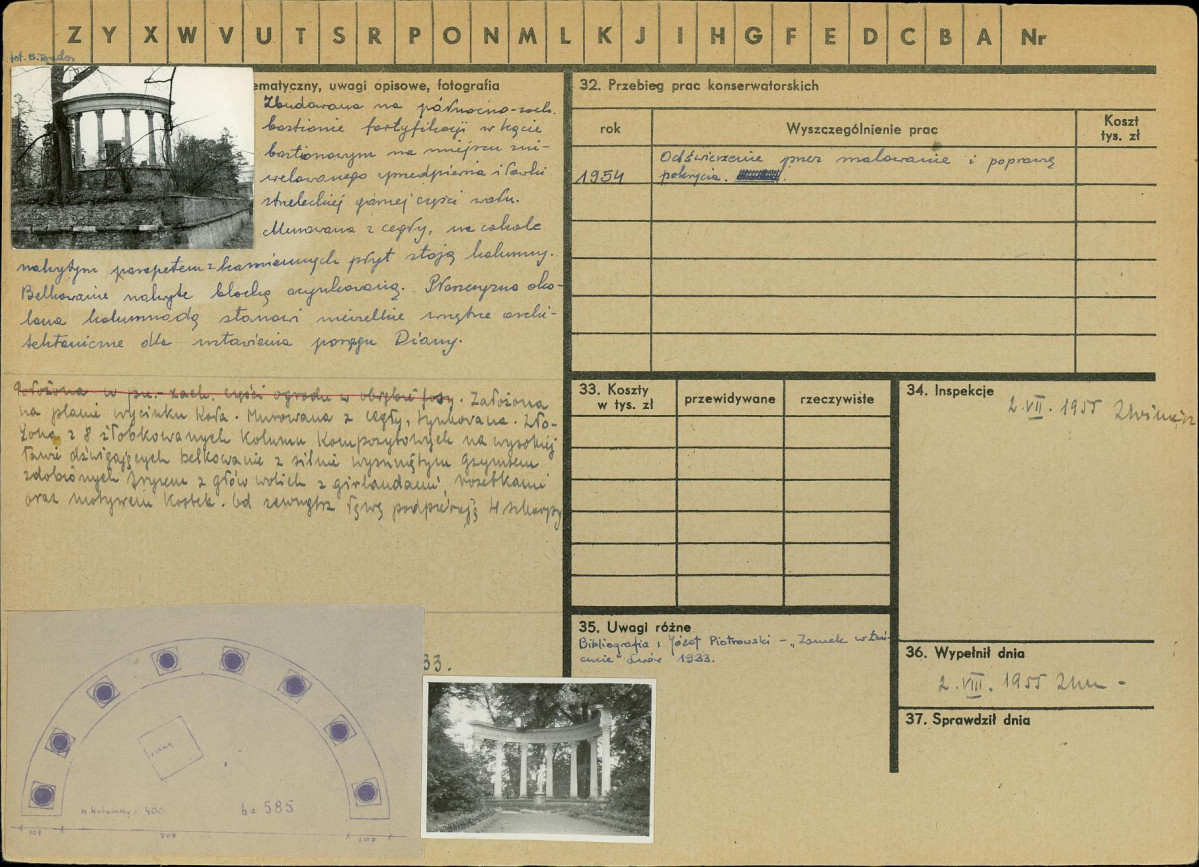 Z Y X W V U T S R P O N M L K J I H G F E D C B A Nr
fot. B.
ematyczny, uwagi opisowe, fotografia
Zbudowana na północno-zach.
bastionie fortyfikacji w kącie
bastionowym na miejscu zni-
welowanego przedpiersia i ławki
strzeleckiej górnej części wału.
Murowana z cegły, na cokole
nakrytym parapetem z kamiennych płyt stoją kolumny.
Belkowanie nakryte blachą ocynkowaną. Płaszczyzna oko-
lona kolumnadą stanowi niewielkie wnętrze archi-
tektoniczne dla ustawienia posągu Diany.
Położona w pn.-zach. części ogrodu w obrębie fosy. Założona
na planie wycinku koła. Murowana z cegły, tynkowana. Zło-
żona z 8 żłobkowanych kolumn kompozytowych na wysokiej
ławie dźwigających belkowanie z silnie wysuniętym gzymsem
zdobionych fryzem z głów wolich z girlandami, rozetkami
oraz motywem kostek. Od zewnątrz ławę podpierają 4 skarpy
33.
h kolumny = 400
h = 585
32. Przebieg prac konserwatorskich
rok Wyszczególnienie prac Koszt tys. zł
1954 Odświeżenie przez malowanie i poprawę
pokrycia.
33. Koszty w tys. zł przewidywane rzeczywiste
34. Inspekcje
2. VII. 1955
35. Uwagi różne
Bibliografia: Józef Piotrowski – „Zamek w Łań-
cucie" Lwów 1933.
36. Wypełnił dnia
2. VIII. 1955
37. Sprawdził dnia